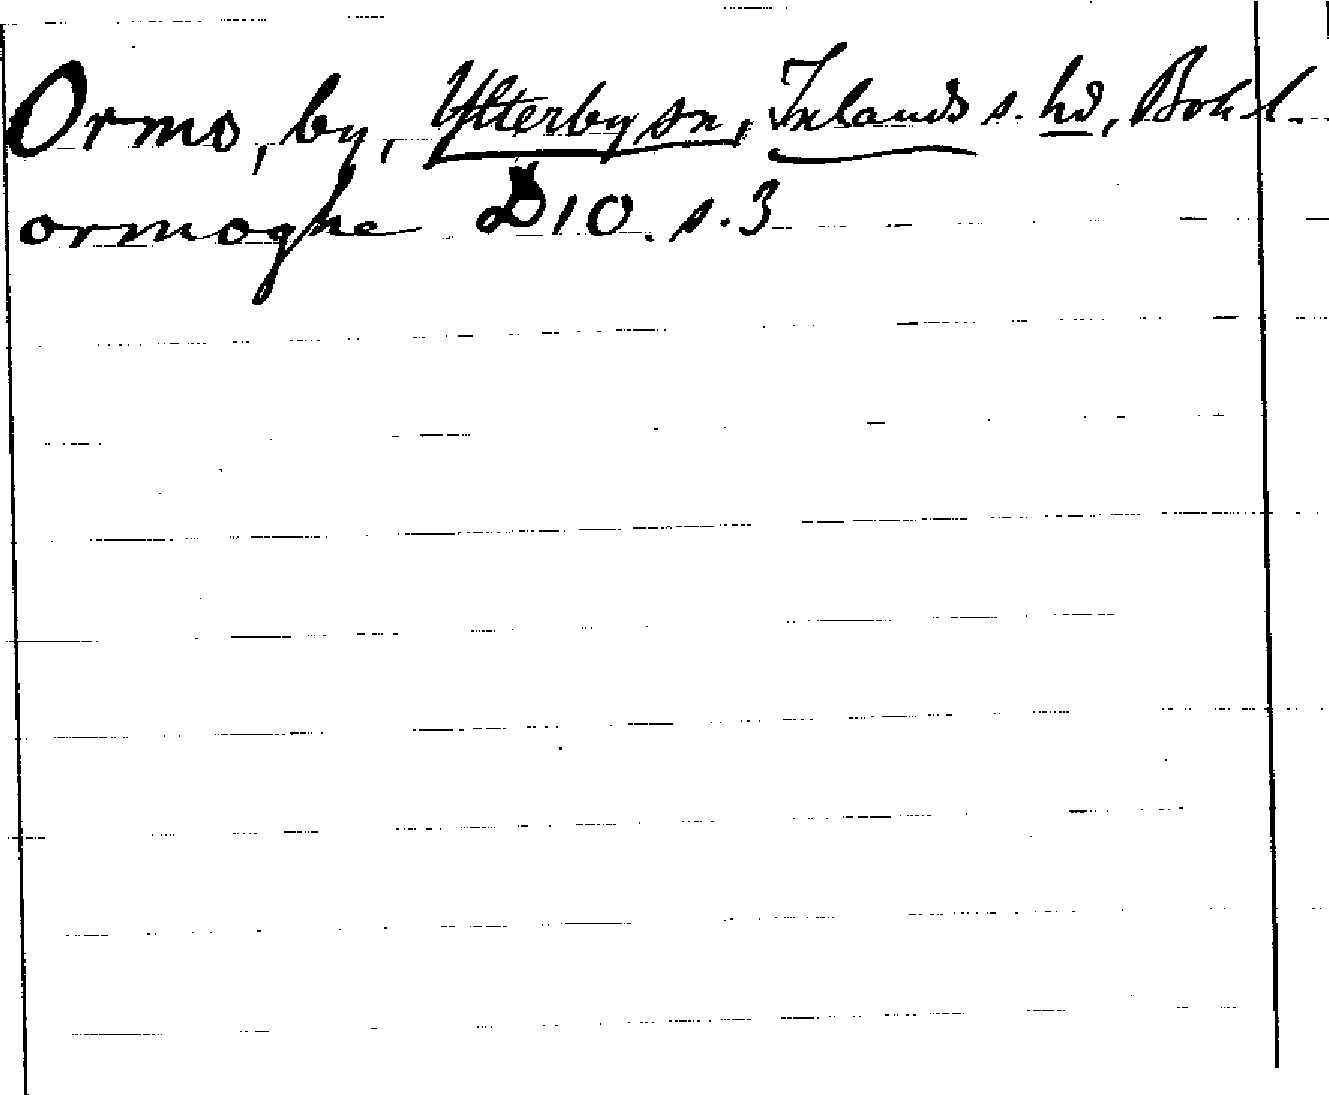 Ormo, by, Ytterby sn, Inlands s. hd, Bohl.
ormoghe D10. s. 3